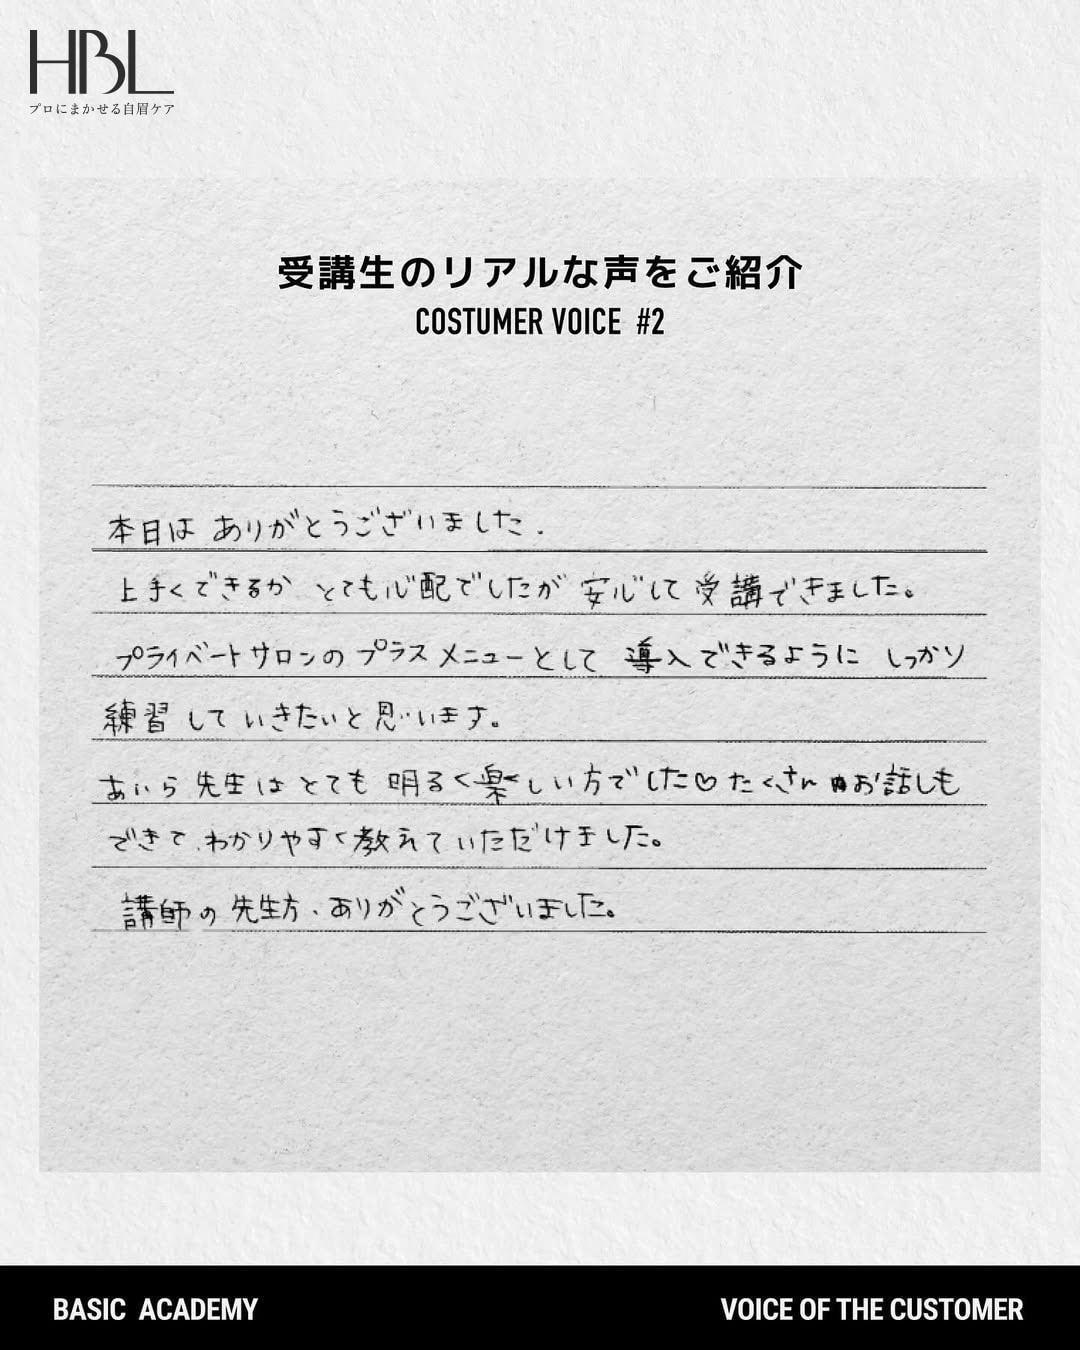 HBL
プロにまかせる自眉ケア
受講生のリアルな声をご紹介
COSTUMER VOICE #2
本日は ありがとうございました.
上手くできるか とても心配でしたが 安心して 受講できました。
プライベートサロンの プラスメニューとして 導入できるように しっかり
練習 して いきたいと 思います。
あいら 先生は とても 明るく楽しい方でした♡ たくさん お話しも
できて、わかりやすく教えていただけました。
講師の 先生方、ありがとうございました。
BASIC ACADEMY
VOICE OF THE CUSTOMER